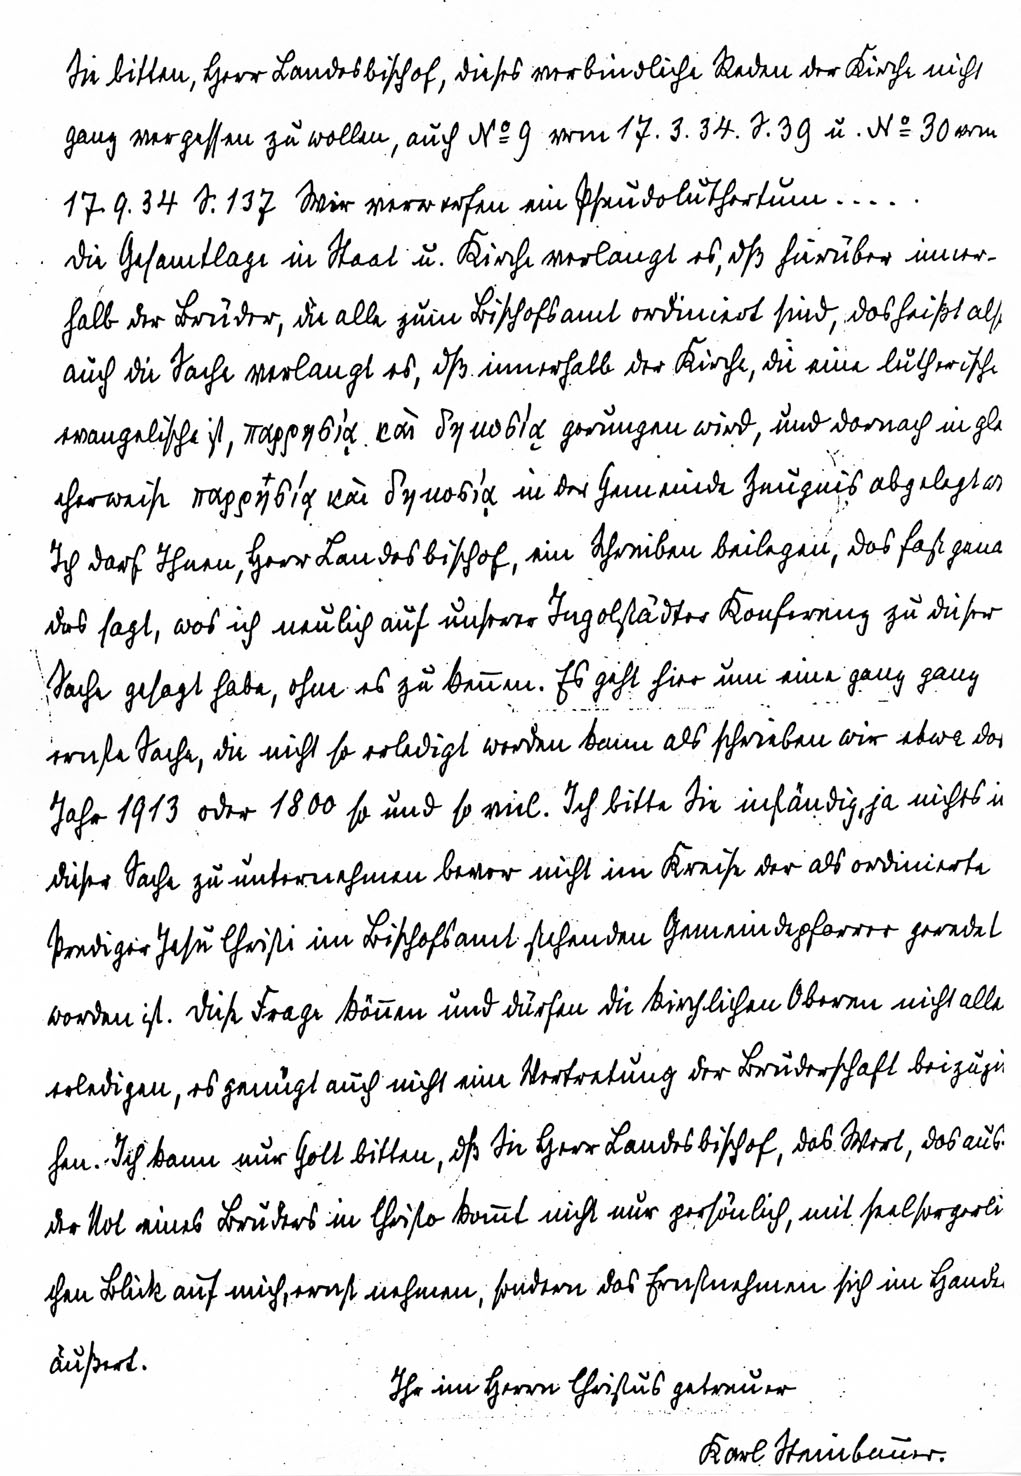 Sie bitten, Herr Landesbischof, dieses verbindliche Reden der Kirche nicht
ganz vergessen zu wollen, auch No 9 vom 17. 3. 34. S. 39 u. No 30 vom
17. 9. 34 S. 137 Wir verwerfen ein Pseudoluthertum . . . . .
Die Gesamtlage in Staat u. Kirche verlangt es, dß hierüber inner-
halb der Brüder, die alle zum Bischofsamt ordiniert sind, das heißt als
auch die Sache verlangt es, dß innerhalb der Kirche, die eine lutherische
evangelische ist, παρρησίᾳ καὶ δημοσίᾳ gerungen wird, und darnach in gle
cherweise παρρησίᾳ καὶ δημοσίᾳ in der Gemeinde Zeugnis abgelegt w
Ich darf Ihnen, Herr Landesbischof, ein Schreiben beilegen, das fast gena
das sagt, was ich neulich auf unserer Ingolstädter Konferenz zu dieser
Sache gesagt habe, ohne es zu kennen. Es geht hier um eine ganz ganz
ernste Sache, die nicht so erledigt werden kann als schrieben wir etwa das
Jahr 1913 oder 1800 so und so viel. Ich bitte Sie inständig, ja nichts i
dieser Sache zu unternehmen bevor nicht im Kreise der als ordinierte
Prediger Jesu Christi im Bischofsamt stehenden Gemeindepfarrer geredet
worden ist. Diese Frage können und dürfen die kirchlichen Oberen nicht alle
erledigen, es genügt auch nicht eine Vertretung der Bruderschaft beizuzie
hen. Ich kann nur Gott bitten, dß Sie Herr Landesbischof, das Wort, das aus
der Not eines Bruders in Christo kommt nicht nur persönlich, mit seelsorgerli
chen Blick auf mich, ernst nehmen, sondern das Ernstnehmen sich im Hande
äußert.
Ihr im Herrn Christus getreuer
Karl Steinbauer.